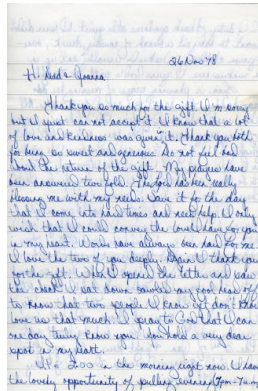 26 Nov 78
Hi Dad & Joanna
Thank you so much for the gift. I'm sorry
but I just can not accept it. I know that a lot
of love and kindness was given it. Thank you both
for being so sweet and generous. Do not feel bad
about the return of the gift. My prayers have
been answered two fold. The Lord has been really
blessing me with my needs. Save it for the day
that I come into hard times and need help. I only
wish that I could convey the love I have for you
in my heart. Words have always been hard for me.
I love the two of you deeply. Again I thank you
for the gift. When I opened the letter and saw
the check I sat down bawled my poor head off
to know that two people I know yet don't know
love us that much. I pray to God that I can
one day truly know you. You hold a very dear
spot in my heart.
It's 2:00 in the morning right now. I have
the lovely opportunity of pulling swing (7pm-7am)